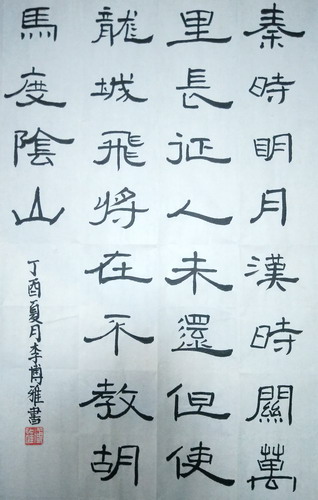 秦時明月漢時關萬
里長征人未還但使
龍城飛將在不教胡
馬度陰山
丁酉夏月李博雅書